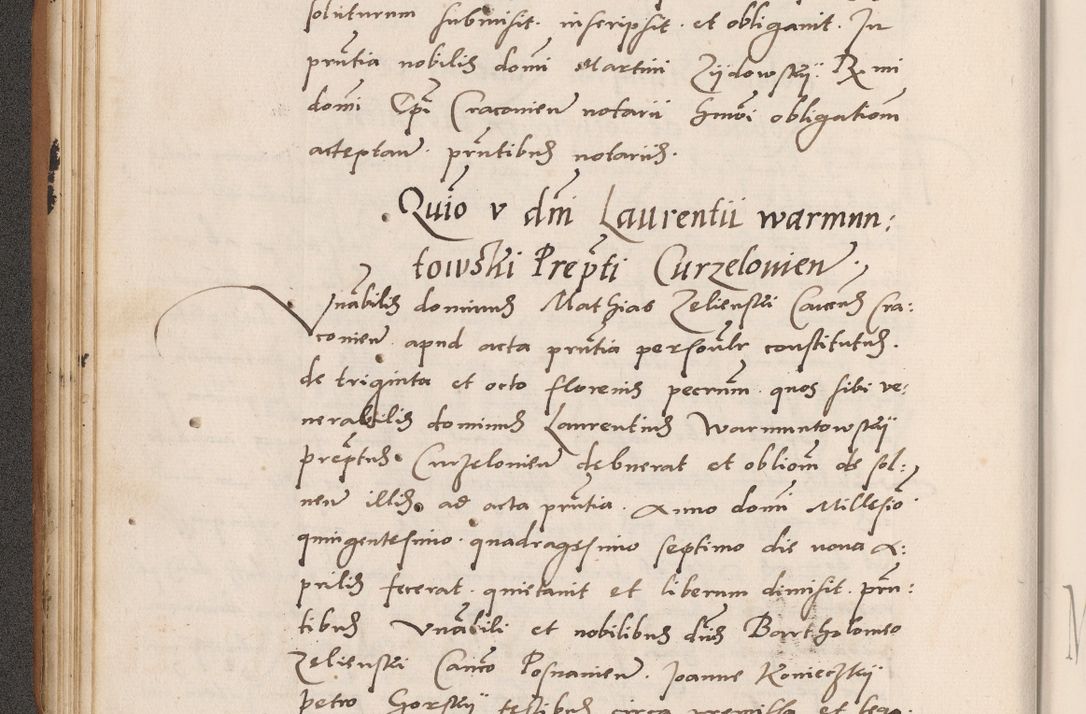 soluturum submisit inscripsit et obligavit. In
pr̄ntia nobilis domī Martini Zydowsky R̄ mi
domī Ep̄i Cracovien̄ notarii hmōi obligationē
acceptan̄. pr̄ntibus notariis.
Quīo v̄ dn̄i Laurentii warmun:
towski Prep̄ti Curzelovien̄.
Vn̄abilis dominus Mathias Zelienski Canc̄us Cra:
covien̄. apud acta pr̄ntia personl̄r constitutus.
de triginta et octo florenis pecun̄m. quos sibi ve:
nerabilis dominus Laurentius Warmuntowsky
prep̄tus Curzelovien̄ debuerat et obliōm de sol:
uen̄ illis ad acta pr̄ntia. Anno domī Millesiō
quingentesimo. quadragesimo septimo die nona A:
prilis fecerat. quietavit et liberum dimisit. pr̄n:
tibus Vn̄abili et nobilibus dn̄is Bartholomeo
Zelienski Canc̄o Posnanien̄. Joanne Konieczky
Petro Gorsky testibus circa premissa et lega: